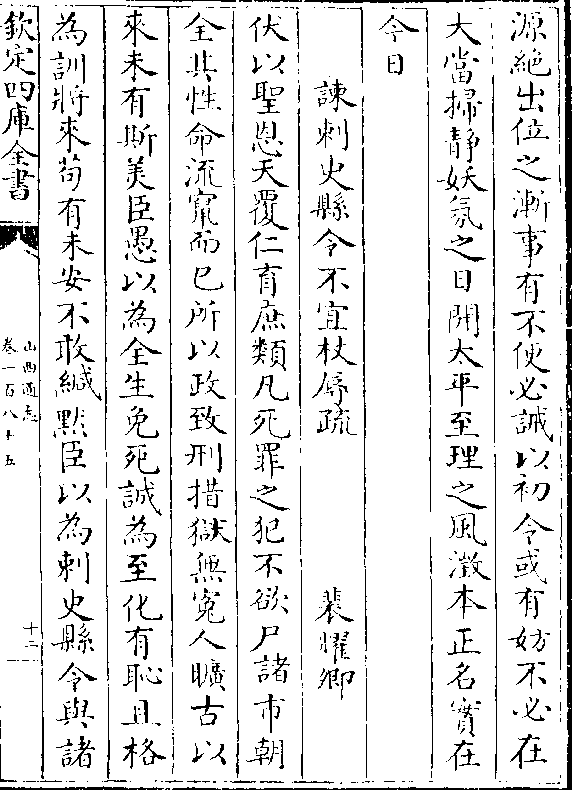 源絶出位之漸事有不便必誡以初令或有妨不必在
大當掃静妖氛之日開太平至理之風澂本正名實在
今日
諫刺史縣令不宜杖辱疏 裴耀卿
伏以聖恩天覆仁育庶類凡死罪之犯不欲尸諸市朝
全其性命流竄而已所以政致刑措獄無寃人曠古以
來未有斯美臣愚以為全生免死誠為至化有恥且格
為訓將來茍有未安不敢緘默臣以為刺史縣令與諸
欽定四庫全書
山西通志
卷一百八十五
十二